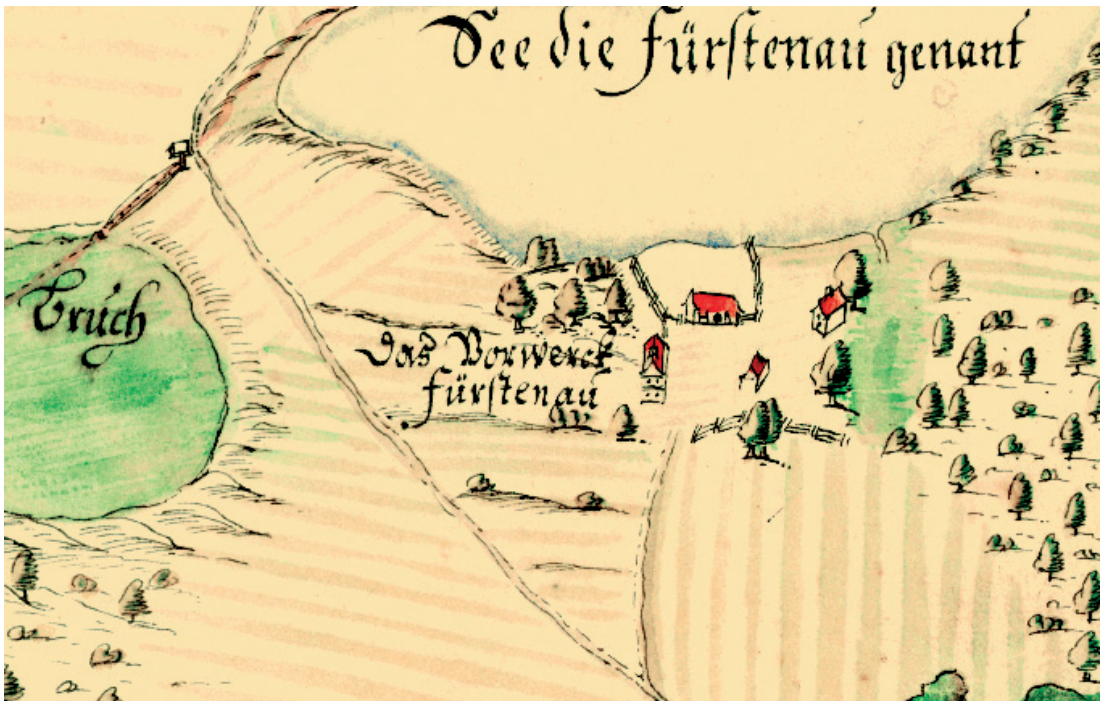 See die Fürstenau genant
Bruch
Das Vorwerck
Fürstenau